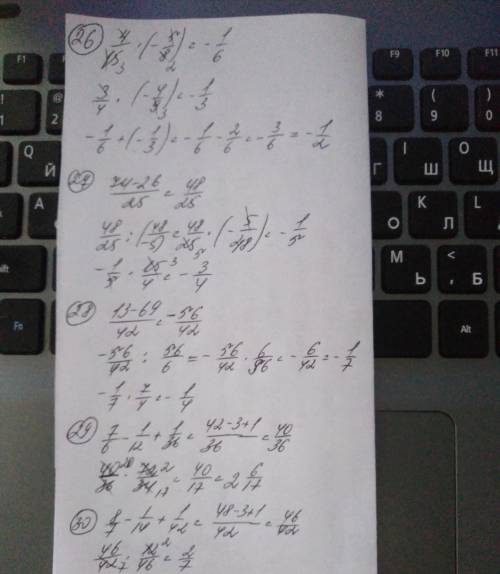 26 4/15 · (-5/8) = -1/6
3/4 · (-4/9) = -1/3
-1/6 + (-1/3) = -1/6 - 2/6 = -3/6 = -1/2
27 74-26/25 = 48/25
48/25 : (48/-5) = 48/25 · (-5/48) = -1/5
-1/5 · 15/4 = -3/4
28 13-69/42 = -56/42
-56/42 : 56/6 = -56/42 · 6/56 = -6/42 = -1/7
-1/7 · 7/4 = -1/4
29 7/6 - 1/12 + 1/36 = 42-3+1/36 = 40/36
40/36 · 72/34 = 40/17 = 2 6/17
30 8/7 - 1/14 + 1/42 = 48-3+1/42 = 46/42
46/42 · 12/46 = 2/7
F1
F9
F10
F11
*
8
(
9
)
0
@
2
Q
Й
I
Ш
O
Щ
A
K
Л
L
<
Б
M
Ь
Alt
Fn